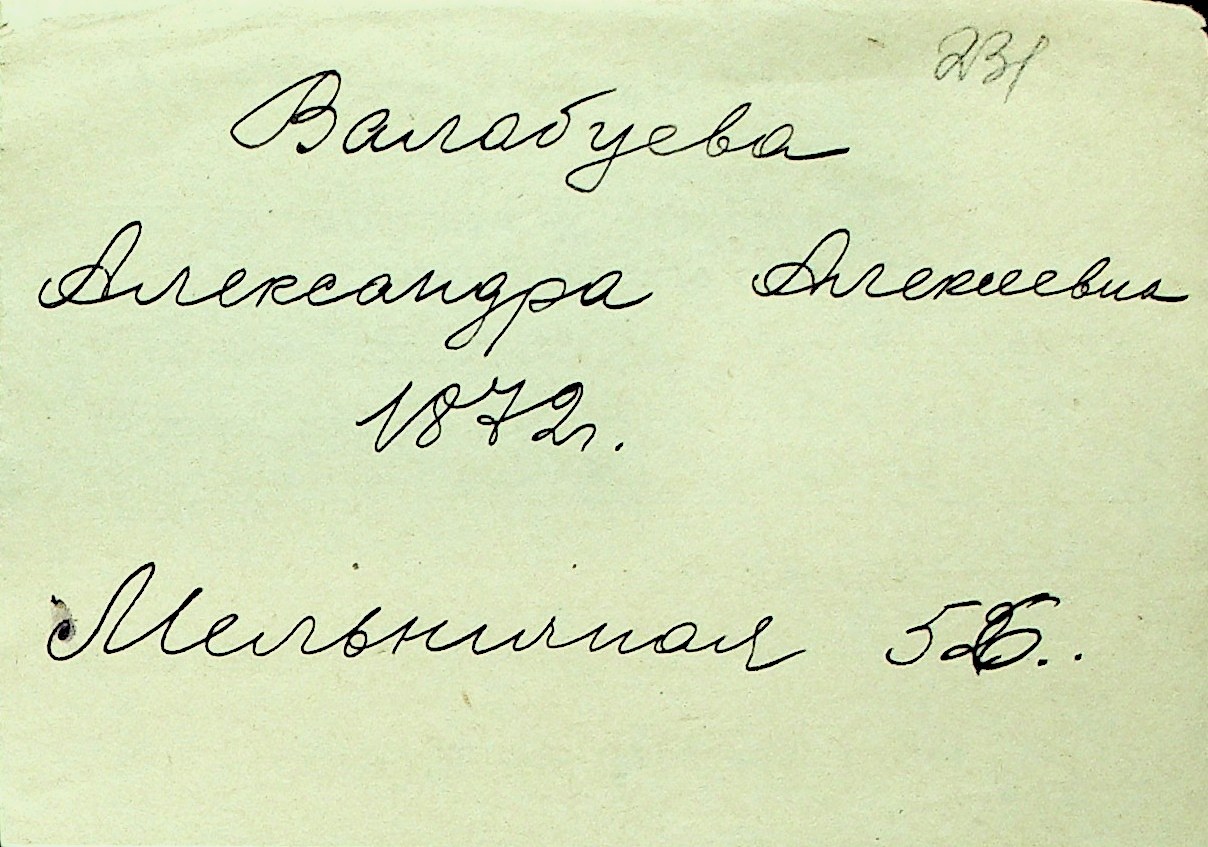 231
Валабуева
Александра Алексеевна
1872г.
Мельничная